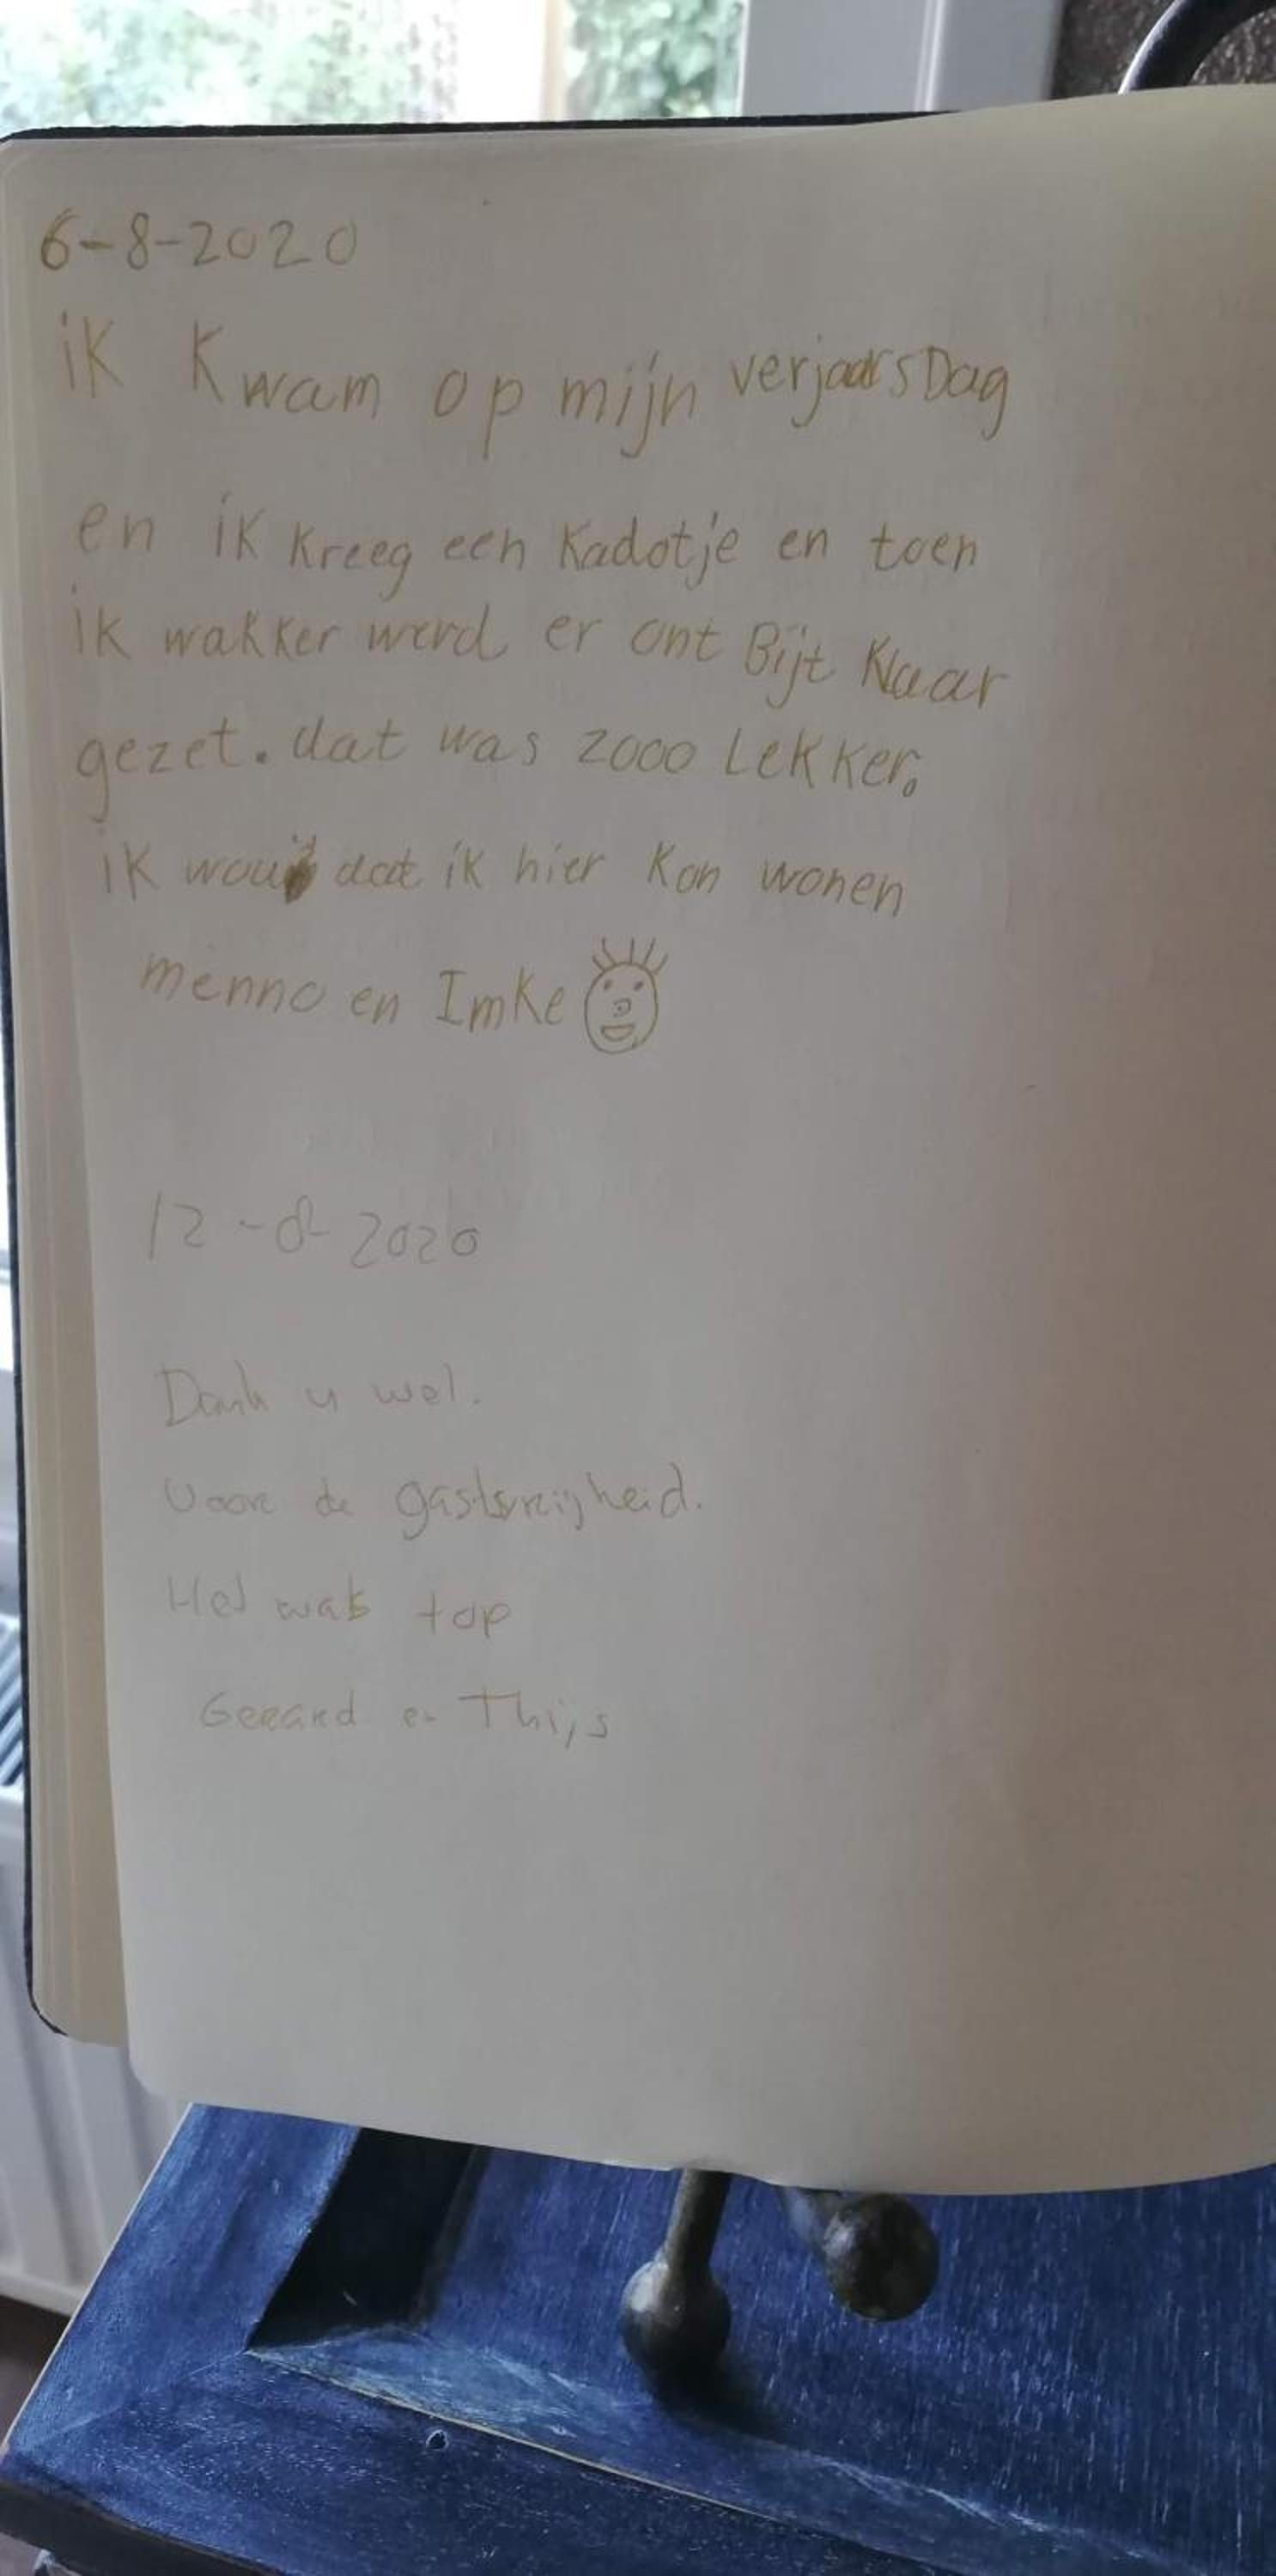 6-8-2020
ik kwam op mijn verjaarsDag
en ik kreeg een Kadotje en toen
ik wakker werd er ont Bijt Klaar
gezet. dat was zooo Lekker.
ik wou dat ik hier kon wonen
menno en Imke
12-8-2020
Dank u wel.
Voor de gastvrijheid.
Het was top
Gerard en Thijs